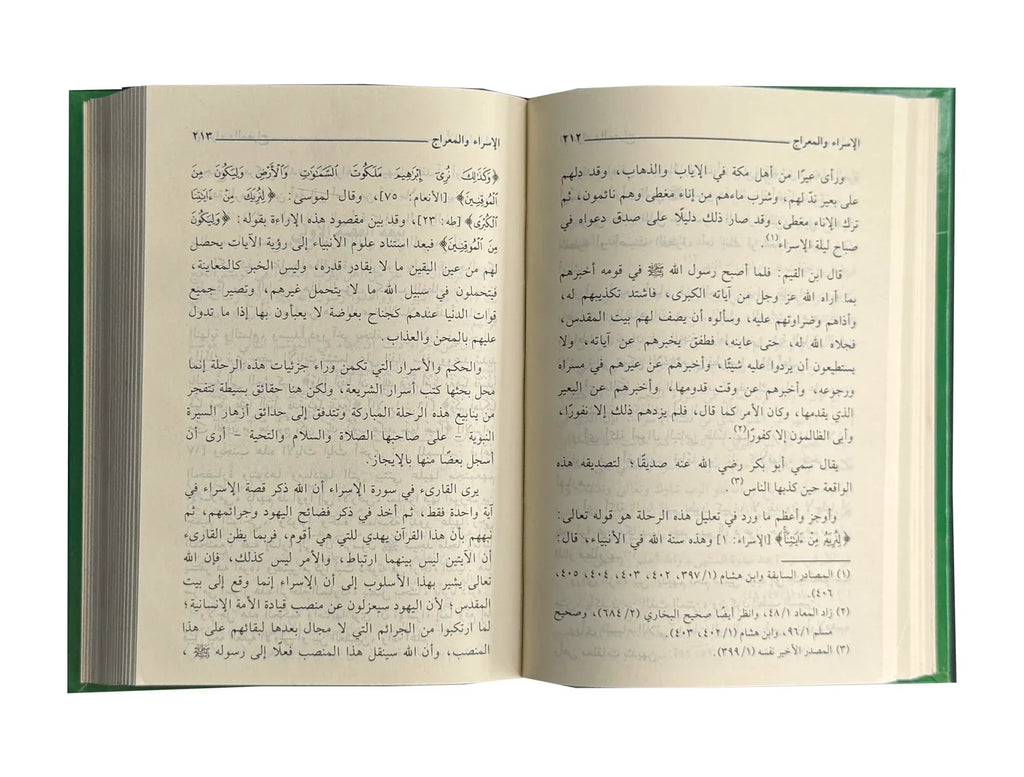 الإسراء والمعراج ٢١٢
ورأى عيرًا من أهل مكة في الإياب والذهاب، وقد دلهم
على بعير ندّ لهم، وشرب ماءهم من إناء مغطى وهم نائمون، ثم
ترك الإناء مغطى، وقد صار ذلك دليلًا على صدق دعواه في
صباح ليلة الإسراء(١).
قال ابن القيم: فلما أصبح رسول الله ﷺ في قومه أخبرهم
بما أراه الله عز وجل من آياته الكبرى، فاشتد تكذيبهم له،
وأذاهم وضراوتهم عليه، وسألوه أن يصف لهم بيت المقدس،
فجلاه الله له، حتى عاينه، فطفق يخبرهم عن آياته، ولا
يستطيعون أن يردوا عليه شيئًا، وأخبرهم عن عيرهم في مسراه
ورجوعه، وأخبرهم عن وقت قدومها، وأخبرهم عن البعير
الذي يقدمها، وكان الأمر كما قال، فلم يزدهم ذلك إلا نفورًا،
وأبى الظالمون إلا كفورًا(٢).
يقال سمي أبو بكر رضي الله عنه صديقًا؛ لتصديقه هذه
الواقعة حين كذبها الناس(٣).
وأوجز وأعظم ما ورد في تعليل هذه الرحلة هو قوله تعالى:
﴿لِنُرِيَهُ مِنْ ءَايَٰتِنَآ﴾ [الإسراء: ١] وهذه سنة الله في الأنبياء، قال:
(١) المصادر السابقة وابن هشام (٣٩٧/١، ٤٠٢، ٤٠٣، ٤٠٤، ٤٠٥،
٤٠٦).
(٢) زاد المعاد ٤٨/١، وانظر أيضًا صحيح البخاري (٦٨٤/٢)، وصحيح
مسلم ٩٦/١، وابن هشام (٤٠٢/١، ٤٠٣).
(٣) المصدر الأخير نفسه (٣٩٩/١).
الإسراء والمعراج ٢١٣
﴿وَكَذَٰلِكَ نُرِىٓ إِبْرَٰهِيمَ مَلَكُوتَ ٱلسَّمَٰوَٰتِ وَٱلْأَرْضِ وَلِيَكُونَ مِنَ
ٱلْمُوقِنِينَ﴾ [الأنعام: ٧٥]، وقال لموسى: ﴿لِنُرِيَكَ مِنْ ءَايَٰتِنَا
ٱلْكُبْرَى﴾ [طه: ٢٣]، وقد بين مقصود هذه الإراءة بقوله: ﴿وَلِيَكُونَ
مِنَ ٱلْمُوقِنِينَ﴾ فبعد استناد علوم الأنبياء إلى رؤية الآيات يحصل
لهم من عين اليقين ما لا يقادر قدره، وليس الخبر كالمعاينة،
فيتحملون في سبيل الله ما لا يتحمل غيرهم، وتصير جميع
قوات الدنيا عندهم كجناح بعوضة لا يعبأون بها إذا ما تدول
عليهم بالمحن والعذاب.
والحكم والأسرار التي تكمن وراء جزئيات هذه الرحلة إنما
محل بحثها كتب أسرار الشريعة، ولكن هنا حقائق بسيطة تتفجر
من ينابيع هذه الرحلة المباركة وتتدفق إلى حدائق أزهار السيرة
النبوية – على صاحبها الصلاة والسلام والتحية – أرى أن
أسجل بعضًا منها بالإيجاز.
يرى القارىء في سورة الإسراء أن الله ذكر قصة الإسراء في
آية واحدة فقط، ثم أخذ في ذكر فضائح اليهود وجرائمهم، ثم
نبههم بأن هذا القرآن يهدي للتي هي أقوم، فربما يظن القارىء
أن الآيتين ليس بينهما ارتباط، والأمر ليس كذلك، فإن الله
تعالى يشير بهذا الأسلوب إلى أن الإسراء إنما وقع إلى بيت
المقدس؛ لأن اليهود سيعزلون عن منصب قيادة الأمة الإنسانية؛
لما ارتكبوا من الجرائم التي لا مجال بعدها لبقائهم على هذا
المنصب، وأن الله سينقل هذا المنصب فعلًا إلى رسوله ﷺ،